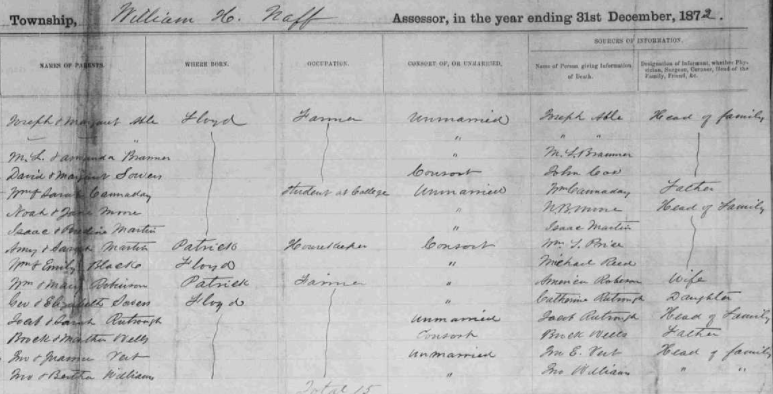 Township, William H. Naff Assessor, in the year ending 31st December, 1872.
SOURCES OF INFORMATION.
NAMES OF PARENTS. WHERE BORN. OCCUPATION. CONSORT OF, OR UNMARRIED. Name of Person giving Information of Death. Designation of Informant, whether Physician, Surgeon, Coroner, Head of the Family, Friend, &c.
Joseph & Margaret Able Floyd Farmer Unmarried Joseph Able Head of family
" " " "
M. L. & Amanda Brammer " M. L. Brammer
David & Margaret Sowers Consort John Coe
Wm & Sarah Cannaday Student at College Unmarried Wm Cannaday Father
Noah & Jane Moore " N. B. Moore Head of Family
Isaac & Martin " Isaac Martin
Amy & Sarah Martin Patrick Housekeeper Consort Wm. S. Price
Wm & Emily Black Floyd " Michael Reed
Wm & Mary Robinson Patrick Farmer " America Wife
Geo & Elizabeth Sowers Floyd " Catharine Rutrough Daughter
Jacob & Sarah Rutrough Unmarried Jacob Rutrough Head of Family
Buck & Martha Wells Consort Buck Wells Father
Jno & Vest Unmarried Jno E. Vest Head of family
Jno & Bertha Williams " Jno Williams " "
Total 15